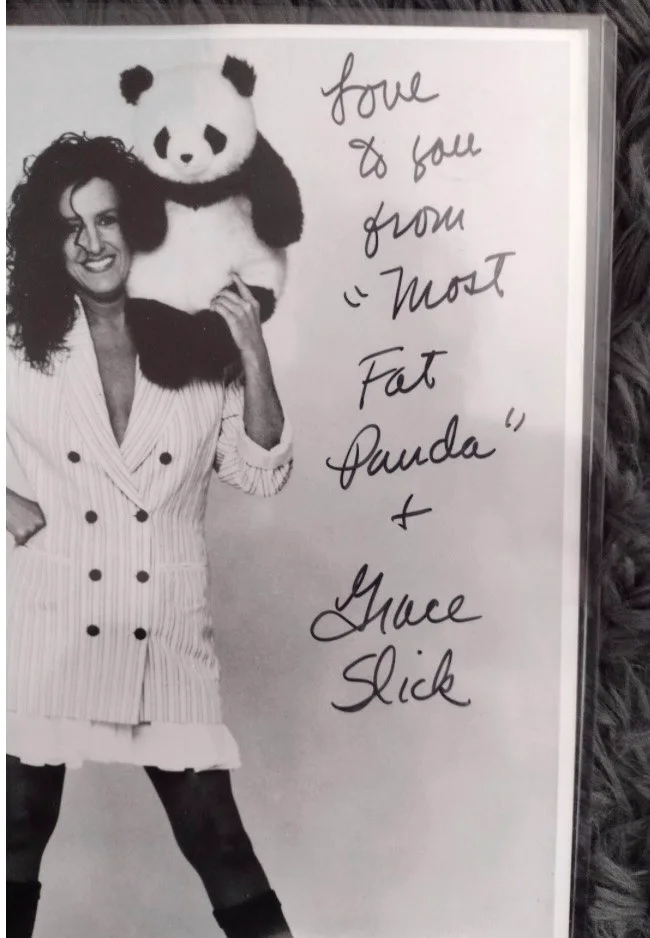 Love
to you
from
"Most
Fat
Panda"
+
Grace
Slick